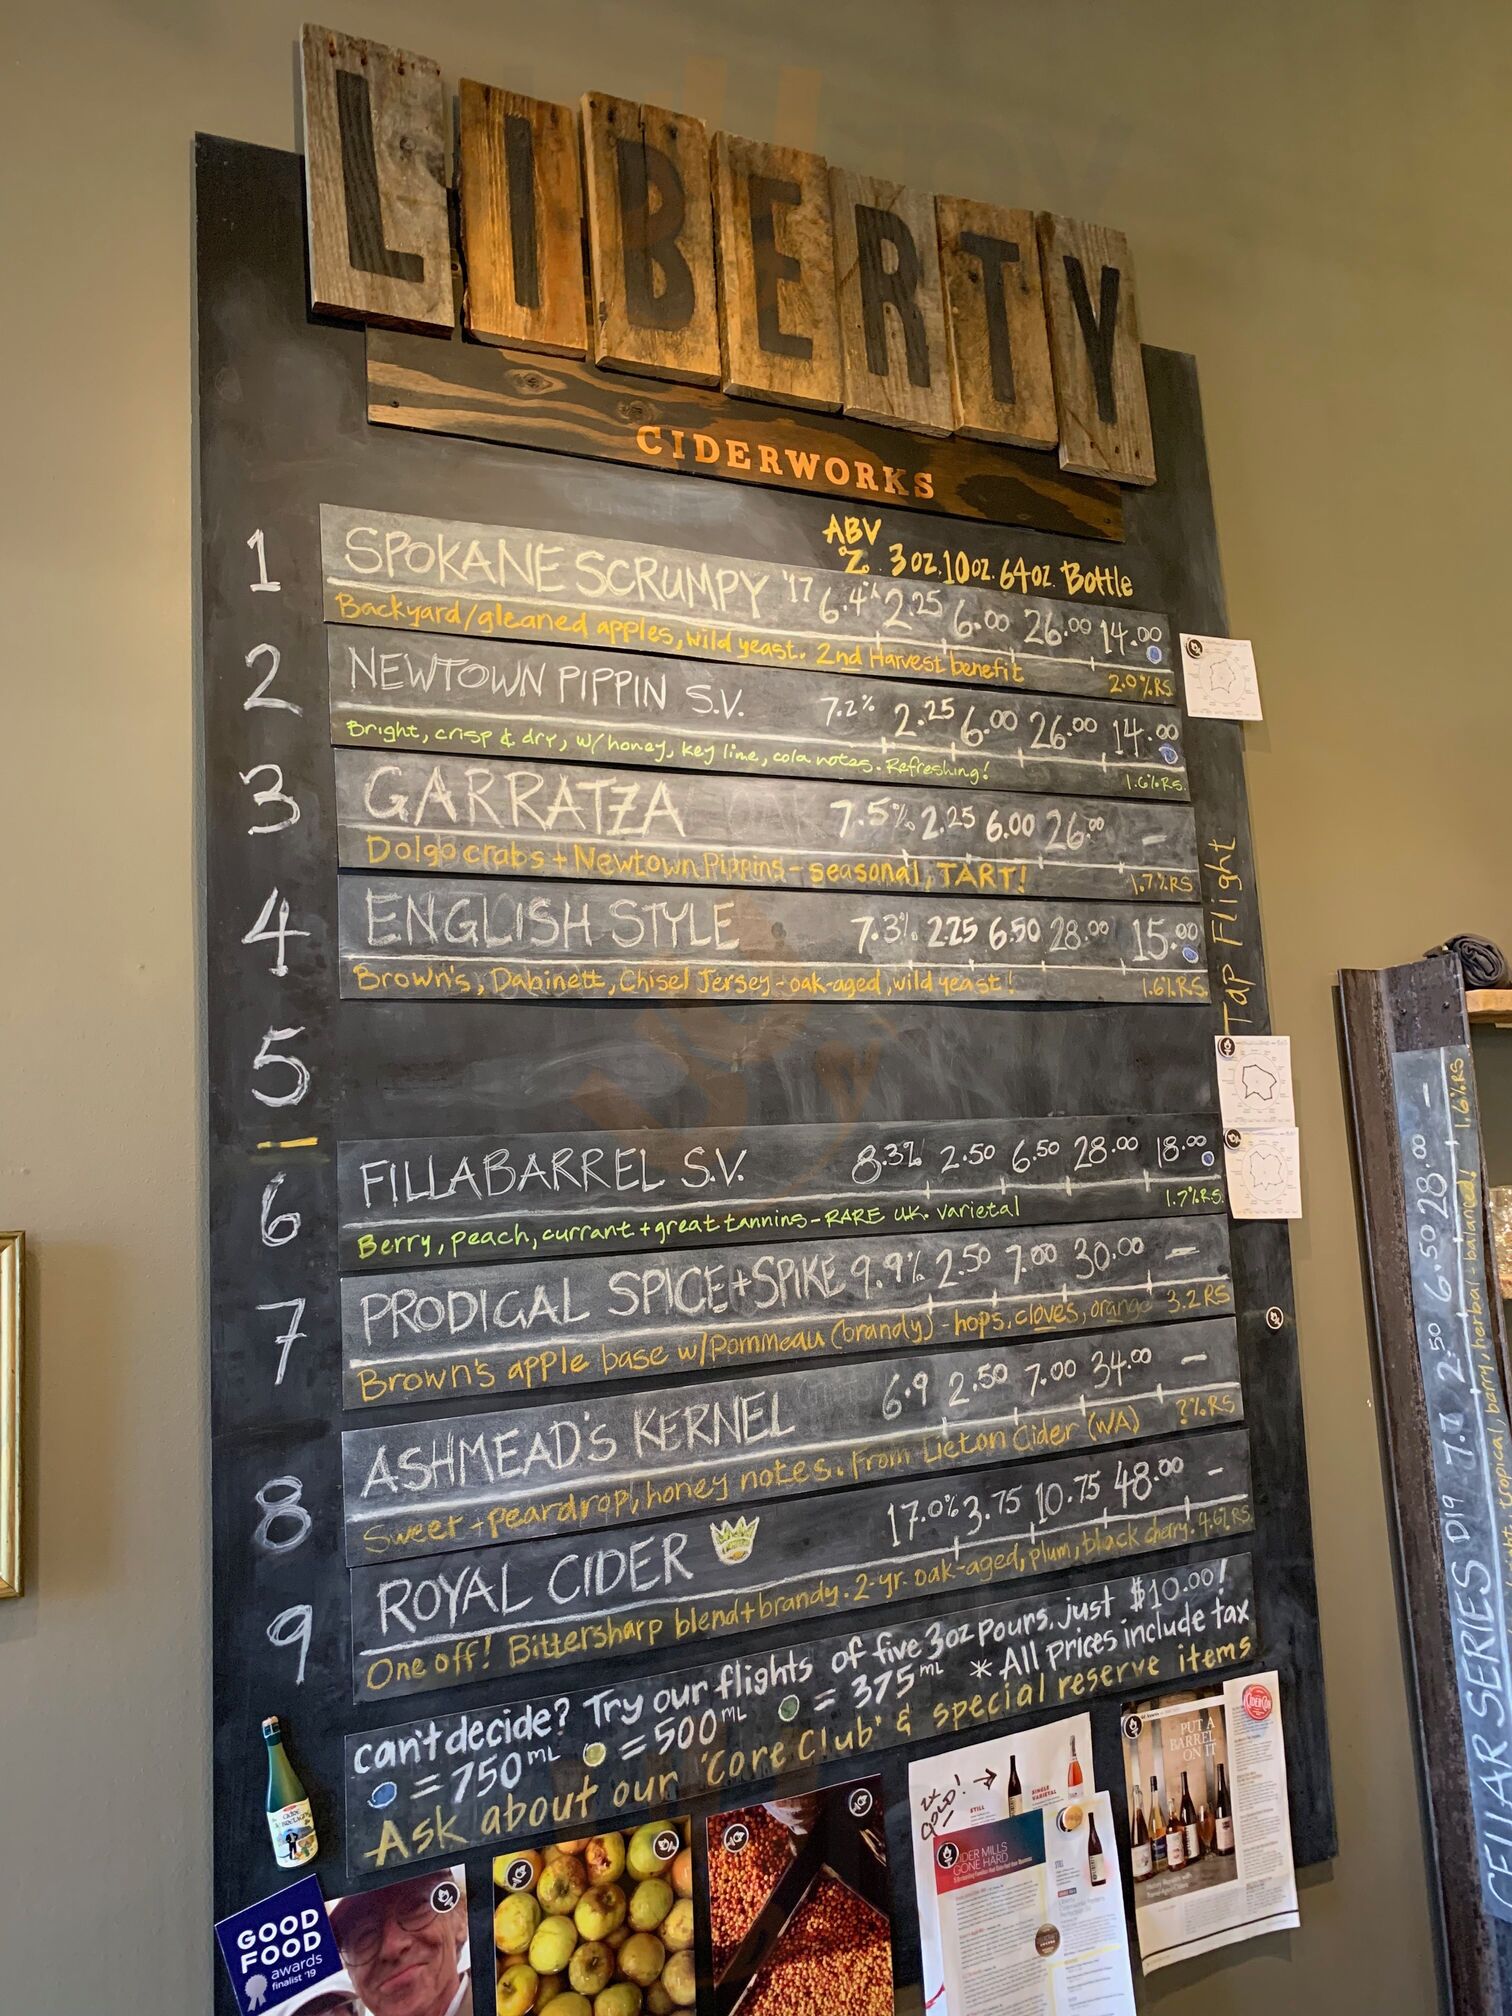 LIBERTY
CIDERWORKS
ABV
% 3oz. 10oz. 64oz. Bottle
1 SPOKANE SCRUMPY '17 6.4% 2.25 6.00 26.00 14.00
Backyard/gleaned apples, wild yeast. 2nd Harvest benefit 2.0%RS
2 NEWTOWN PIPPIN S.V. 7.2% 2.25 6.00 26.00 14.00
Bright, crisp & dry, w/honey, key lime, cola notes. Refreshing! 1.6%RS.
3 GARRATZA 7.5% 2.25 6.00 26.00 —
Dolgo crabs + Newtown Pippins - seasonal, TART! 1.7%RS
4 ENGLISH STYLE 7.3% 2.25 6.50 28.00 15.00
Brown's, Dabinett, Chisel Jersey - oak-aged, wild yeast! 1.6%RS.
5
Tap Flight
6 FILLABARREL S.V. 8.3% 2.50 6.50 28.00 18.00
Berry, peach, currant + great tannins - RARE U.K. varietal 1.7%RS.
7 PRODIGAL SPICE + SPIKE 9.9% 2.50 7.00 30.00 —
Brown's apple base w/Pommeau (brandy) - hops, cloves, orange 3.2 RS
8 ASHMEAD'S KERNEL 6.9 2.50 7.00 34.00 —
Sweet + peardrop, honey notes. From Lieton Cider (WA) ?%RS
9 ROYAL CIDER 17.0% 3.75 10.75 48.00 —
One off! Bittersharp blend + brandy. 2-yr. oak-aged, plum, black cherry. 4.6%RS.
can't decide? Try our flights of five 3oz pours, just $10.00!
= 750mL = 500mL = 375mL * All prices include tax
Ask about our 'Core Club' & special reserve items
GOOD
FOOD
awards
finalist '19
2x
GOLD!
STILL
SINGLE
VARIETAL
CIDER MILLS
GONE HARD
PUT A
BARREL
ON IT
CELLAR SERIES D19 7.7 2.50 6.50 28.00 —
tropical, berry, herbal - balanced! 1.6%RS